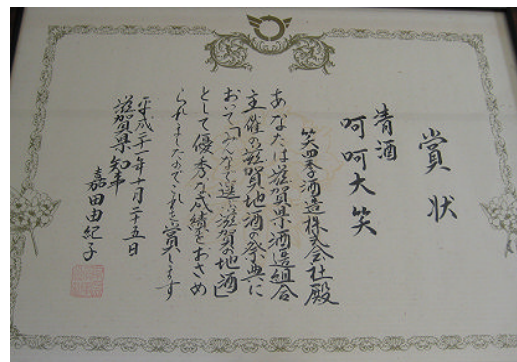 賞状
清酒
呵呵大笑
笑四季酒造株式会社殿
あなたは滋賀県酒造組合
主催の滋賀地酒の祭典に
おいて「みんなで選ぶ滋賀の地酒」
として優秀な成績をおさめ
られましたのでこれを賞します
平成二十一年十月二十五日
滋賀県知事
嘉田由紀子